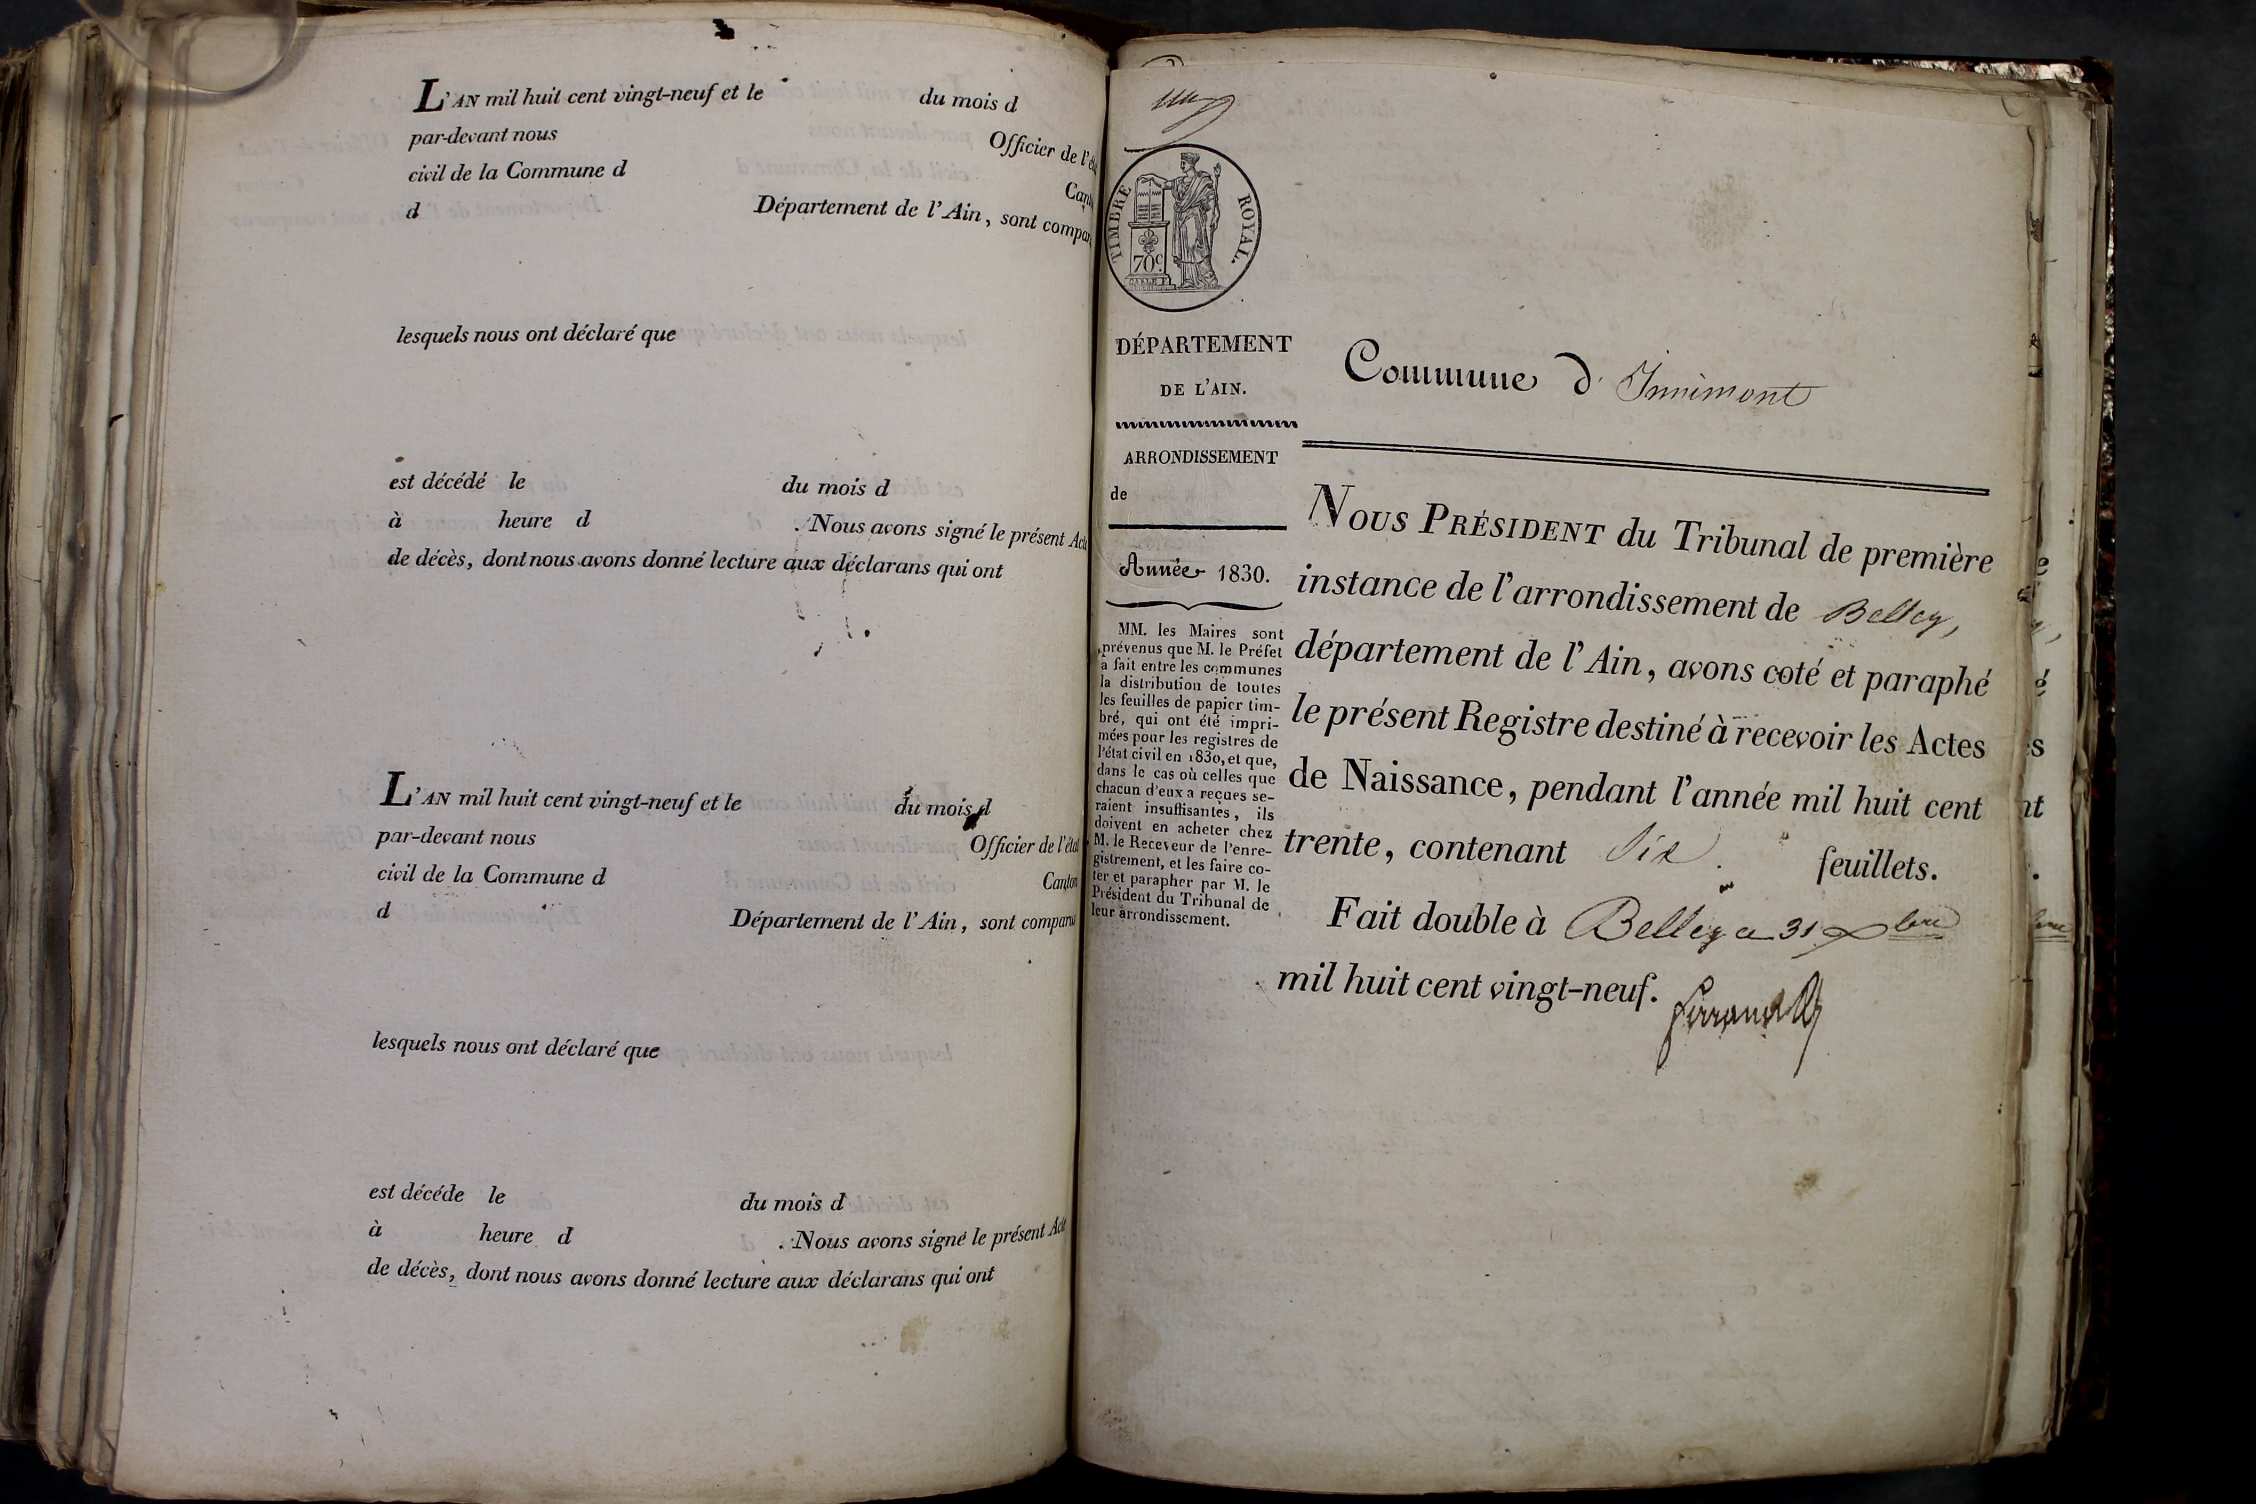 L'AN mil huit cent vingt-neuf et le du mois d
par-devant nous Officier de l'éta
civil de la Commune d Canto
d Département de l'Ain, sont compar
lesquels nous ont déclaré que
est décédé le du mois d
à heure d . Nous avons signé le présent Acte
de décès, dont nous avons donné lecture aux déclarans qui ont
L'AN mil huit cent vingt-neuf et le du mois d
par-devant nous Officier de l'état
civil de la Commune d Canton
d Département de l'Ain, sont comparu
lesquels nous ont déclaré que
est décéde le du mois d
à heure d . Nous avons signé le présent Acte
de décès, dont nous avons donné lecture aux déclarans qui ont
TIMBRE ROYAL.
70 c.
DÉPARTEMENT
DE L'AIN.
ARRONDISSEMENT
de
Année 1830.
MM. les Maires sont
prévenus que M. le Préfet
a fait entre les communes
la distribution de toutes
les feuilles de papier tim-
bré, qui ont été impri-
mées pour les registres de
l'état civil en 1830, et que,
dans le cas où celles que
chacun d'eux a reçues se-
raient insuffisantes, ils
doivent en acheter chez
M. le Receveur de l'enre-
gistrement, et les faire co-
ter et parapher par M. le
Président du Tribunal de
leur arrondissement.
Commune d' Innimont
NOUS PRÉSIDENT du Tribunal de première
instance de l'arrondissement de Belley,
département de l'Ain, avons coté et paraphé
le présent Registre destiné à recevoir les Actes
de Naissance, pendant l'année mil huit cent
trente, contenant Six feuillets.
Fait double à Belley ce 31 xbre
mil huit cent vingt-neuf.